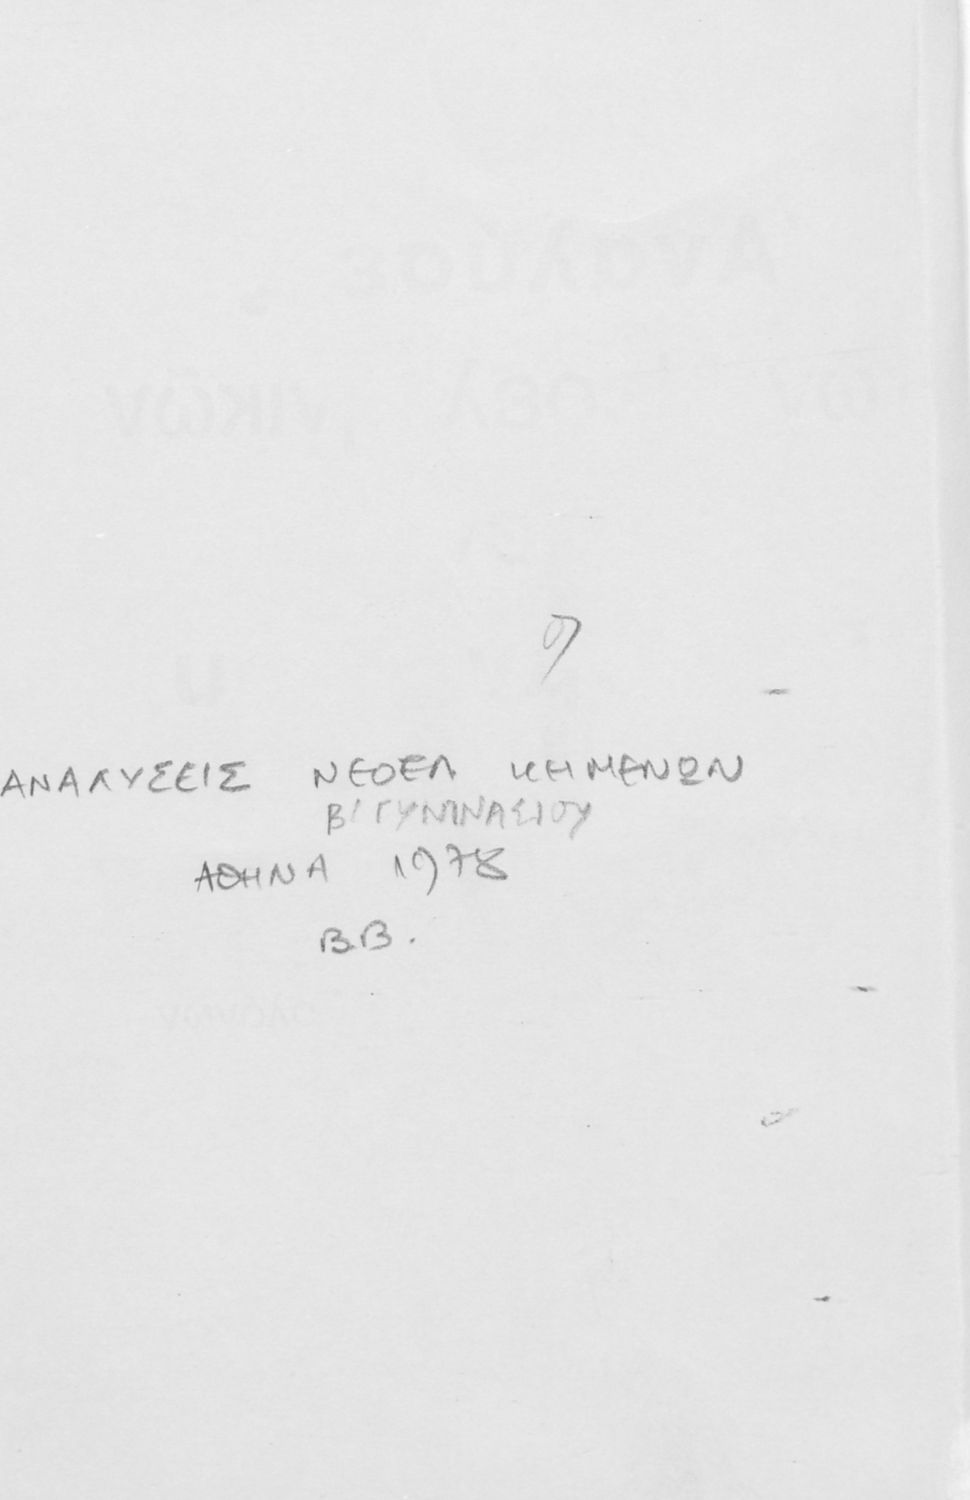 ΑΝΑΛΥΣΕΙΣ ΝΕΟΕΛ ΚΗΜΕΝΩΝ
Β' ΓΥΜΝΑΣΙΟΥ
ΑΘΗΝΑ 1978
Β.Β.